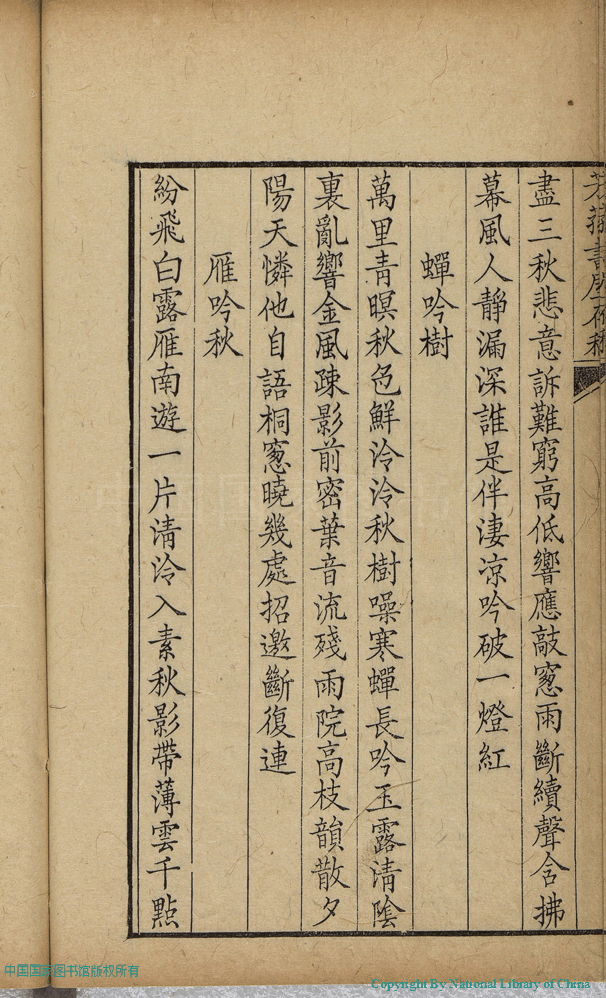 盡三秋悲意訴難窮高低響應敲窻雨斷續聲含拂
幕風人靜漏深誰是伴淒凉吟破一燈紅
蟬吟樹
萬里青暝秋色鮮泠泠秋樹噪寒蟬長吟玉露清陰
裏亂響金風疎影前密葉音流殘雨院高枝韻散夕
陽天憐他自語桐窻曉幾處招邀斷復連
雁吟秋
紛飛白露雁南遊一片清泠入素秋影帶薄雲千點
中国国家图书馆版权所有
Copyright By National Library of China